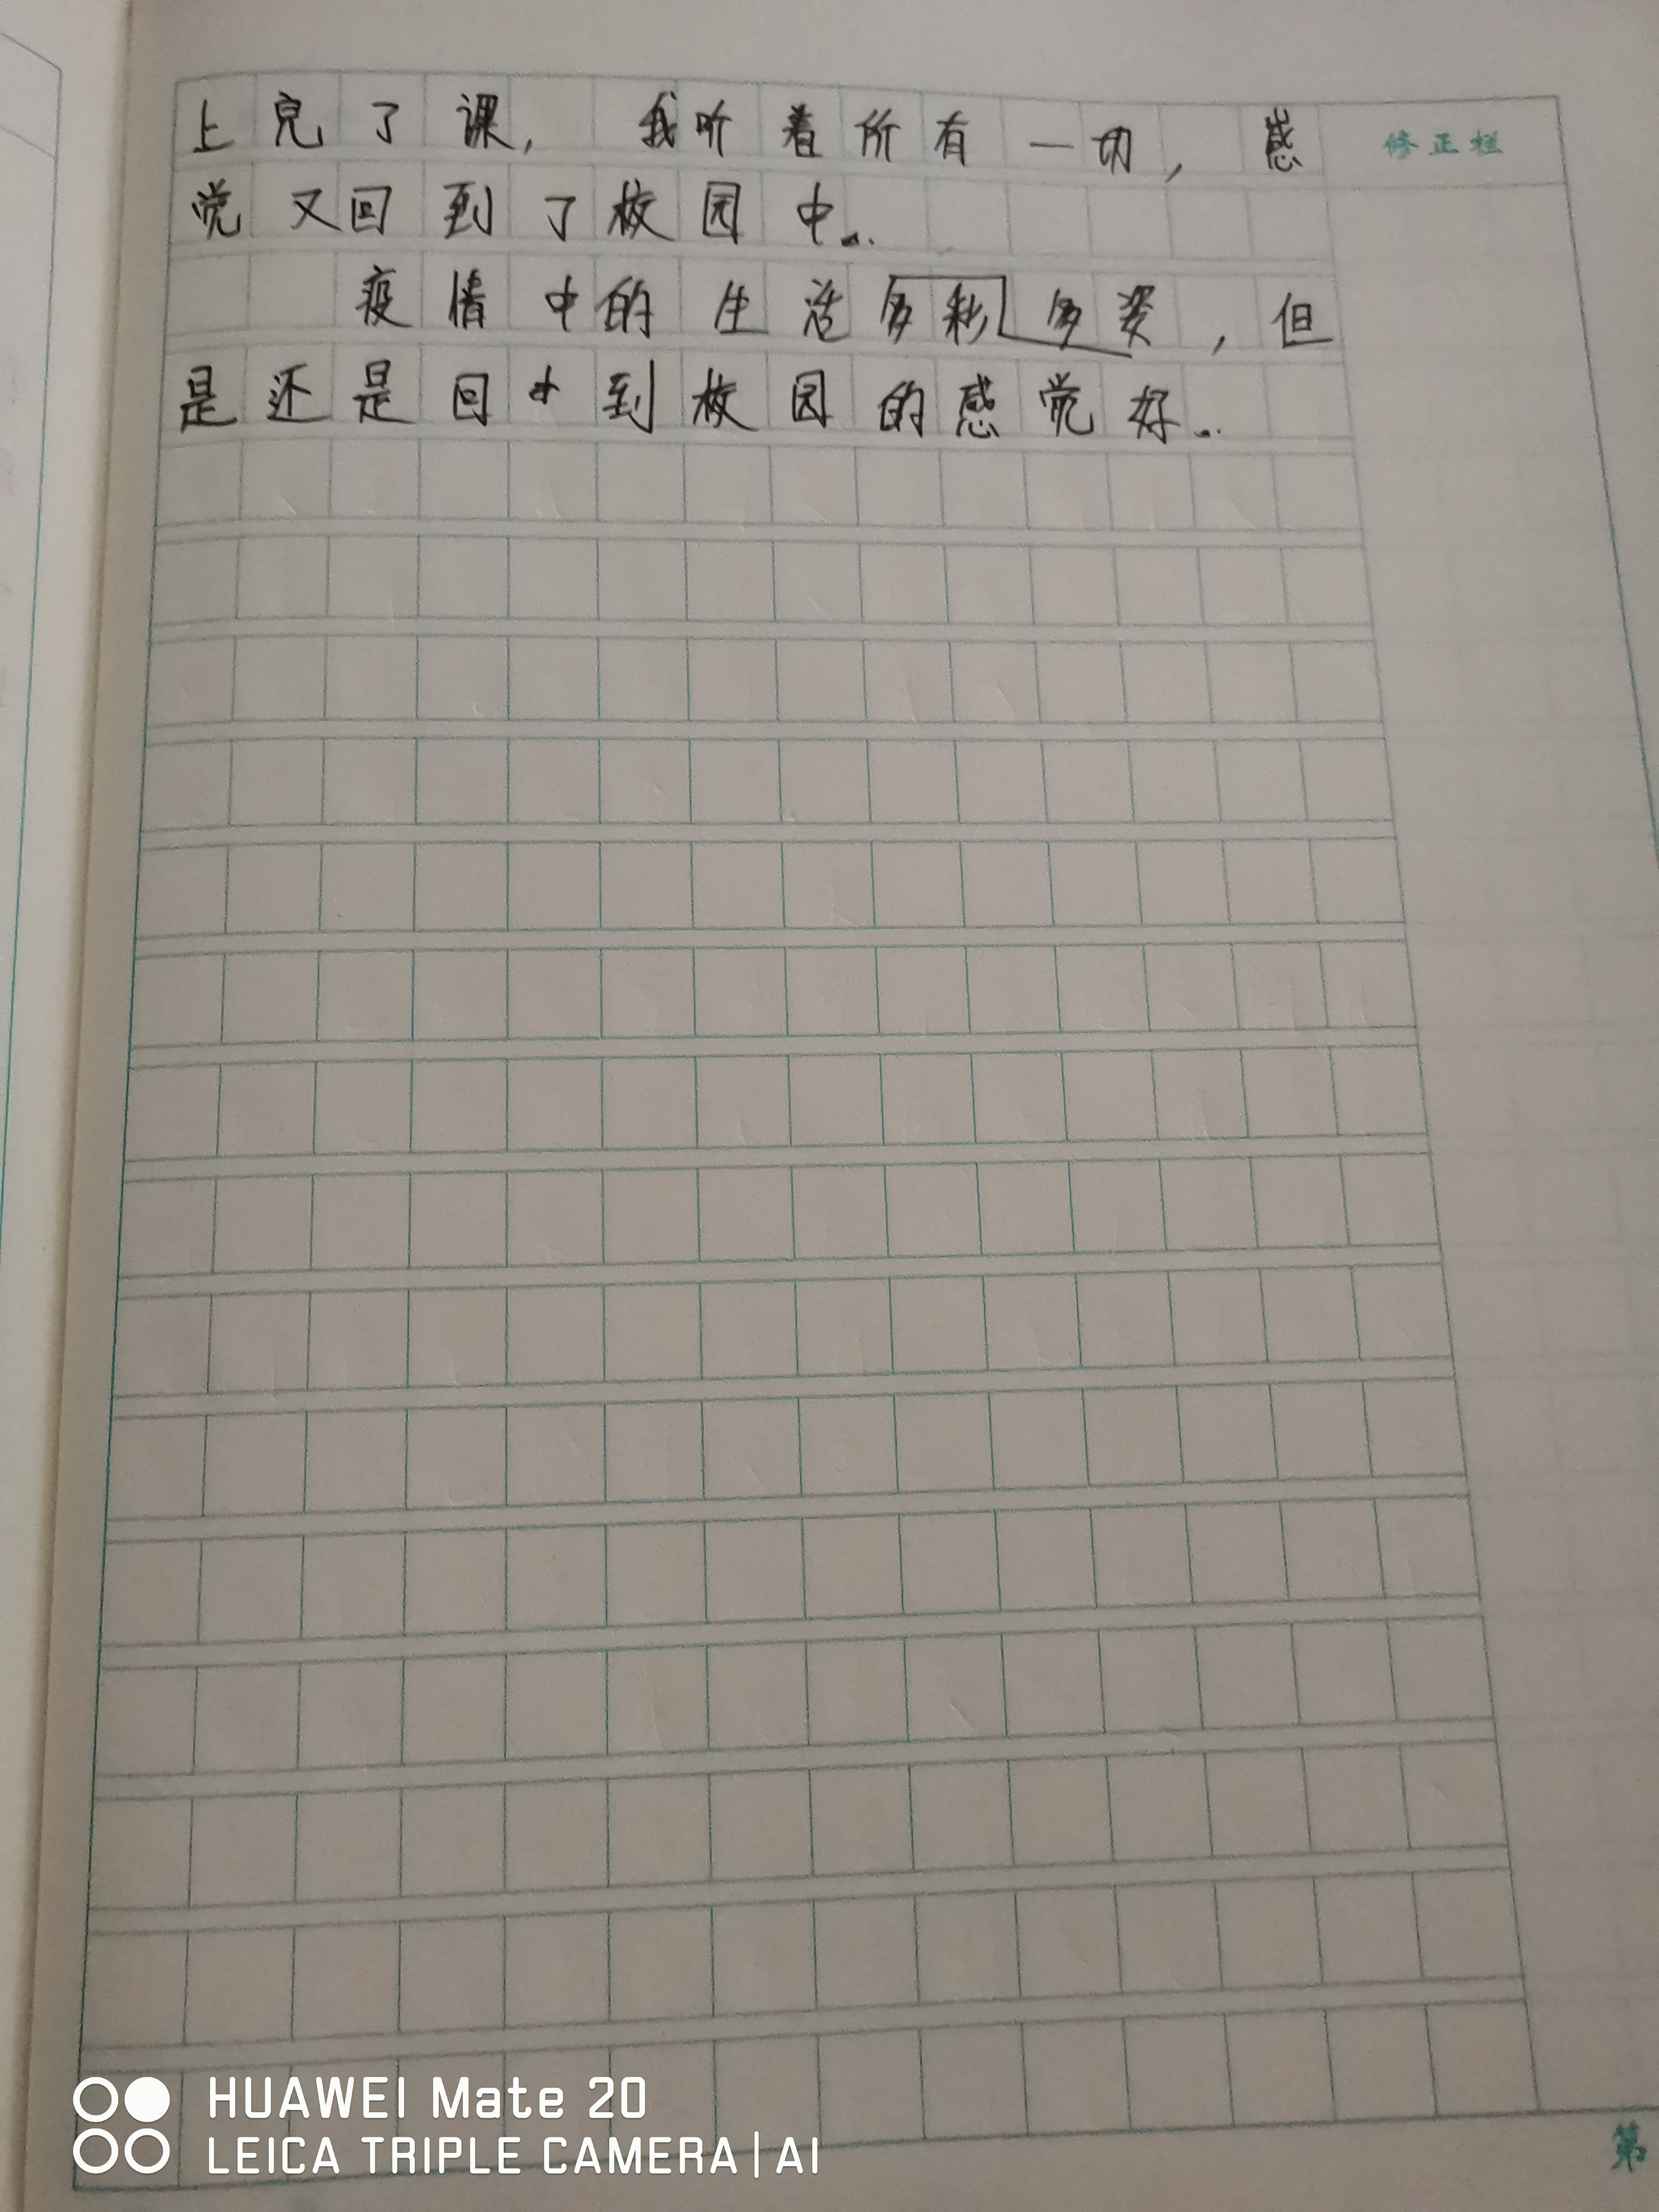 上完了课，我听着所有一切，感
修正栏
觉又回到了校园中。
疫情中的生活多彩多姿，但
是还是回到校园的感觉好。
HUAWEI Mate 20
LEICA TRIPLE CAMERA | AI
第